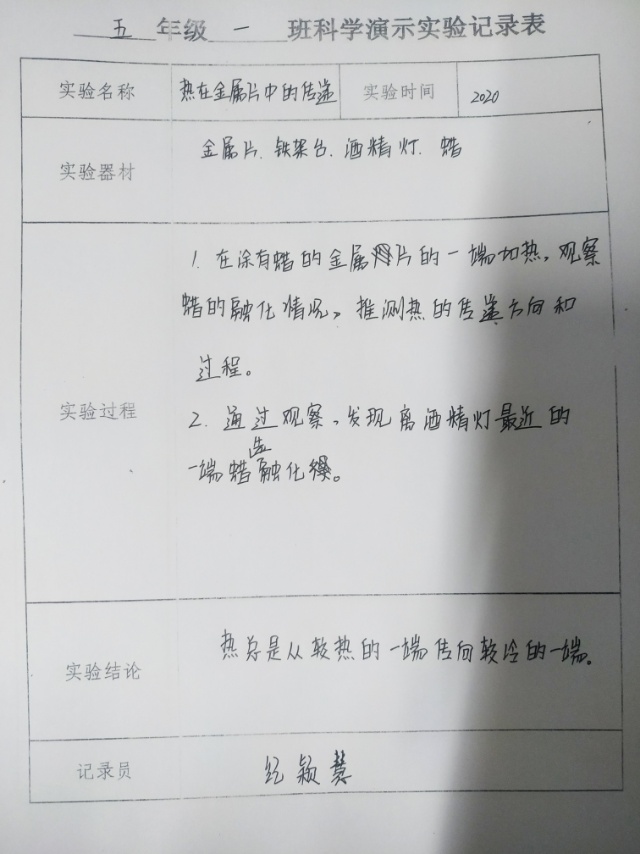 五 年级 一 班科学演示实验记录表
实验名称 热在金属片中的传递 实验时间 2020
实验器材 金属片.铁架台.酒精灯.蜡
1.在涂有蜡的金属片的一端加热,观察
蜡的融化情况,推测热的传递方向和
过程。
实验过程
2.通过观察,发现离酒精灯最近的
一端蜡先融化。
实验结论 热总是从较热的一端传向较冷的一端。
记录员 纪颖